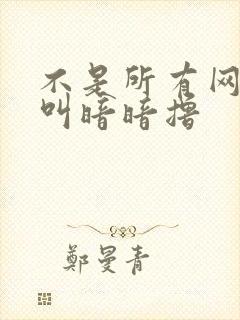 不是所有网
叫暗暗撸
鄭曼青